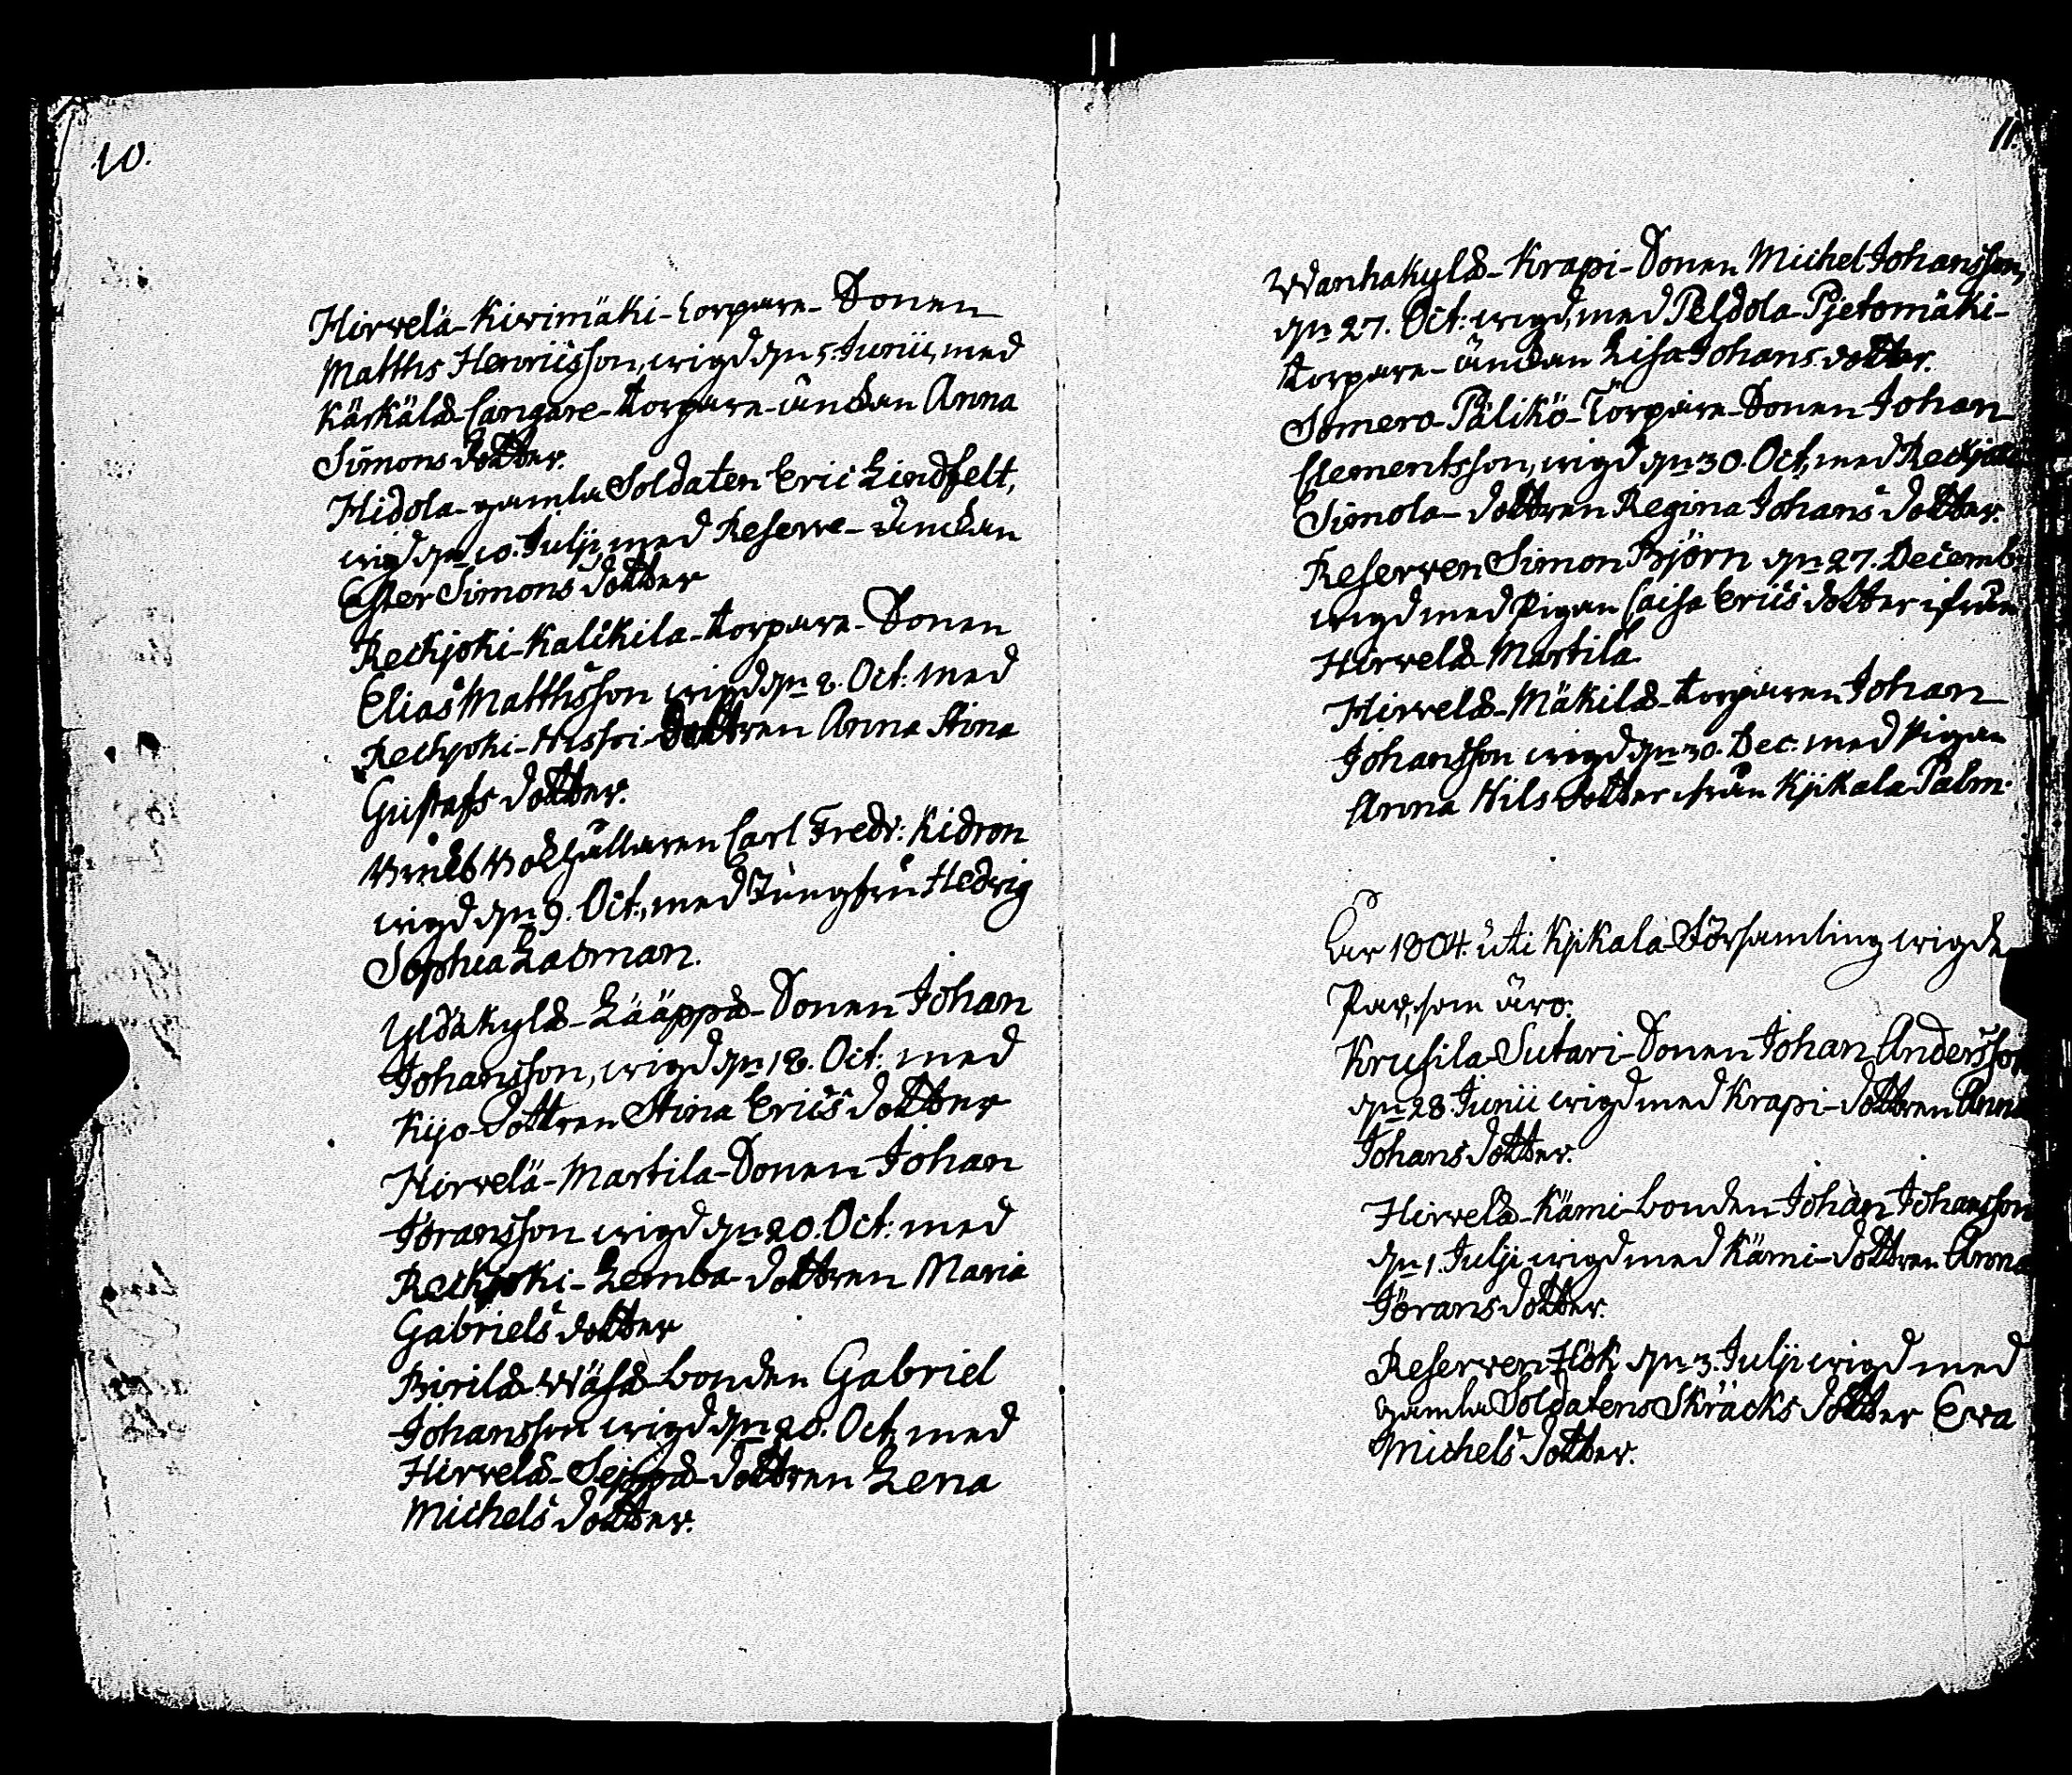 10.
Hirvelä-Kivimäki-torpare-Sonen
Matths Henricsson, wigd dn 5. Junii, med
Käskälä-Cangare-torpare-änckan Anna
Simonsdotter.
Hidola-gamla Soldaten Eric Lindfelt,
wigd dn 10. Julji, med Reserve-änckan
Ester Simons dotter
Reckjoki-Kalikila-torpare-Sonen
Elias Matthsson wigd dn 2. Oct: med
Reckjoki-Hissi-dottren Anna Stina
Gustafs dotter.
Bruks Bokhållaren Carl Fredr: Kidron
wigd dn 9. Oct:, med Jungfru Hedvig
Sophia Lacman.
Yldäkylä-Lääppä-Sonen Johan
Johansson, wigd dn 18. Oct: med
Kijo-dottren Stina Erics dotter
Hirvelä-Martila-Sonen Johan
Jöransson wigd dn 20. Oct: med
Reckjoki-Lemba-dottren Maria
Gabriels dotter
Birilä-Wäsä-bonden Gabriel
Johansson wigd dn 20. Oct, med
Hirvelä-Seppä-dottren Lena
Michels dotter.
11.
Wanhakylä-Krapi-Sonen Michel Johansson,
dn 27. Oct: wigd, med Peldola-Pjetomäki-
torpare-änckan Lisa Johans dotter.
Somero-Pälikö-Torpare-Sonen Johan
Clementsson, wigd dn 30. Oct, med
Simola-dottren Regina Johans dotter.
Reserven Simon Björn dn 27. Decemb:
wigd med Pigan Caisa Erics dotter ifrån
Hirvelä-Martila.
Hirvelä-Mäkilä-torparen Johan
Johansson wigd dn 30. Dec. med Pigan
Anna Nils dotter ifrån Kjikala Palm.
Åhr 1804. uti Kjikala-Församling wigde
Par, som äro:
Krusila-Sutari-Sonen Johan Andersson
dn 28. Junii wigd med Krapi-dottren Anna
Johans dotter.
Hirvelä-Kämi-bonden Johan Johansson
dn 1. Julji wigd med Kämi-dottren Anna
Jörans dotter.
Reserven Hök dn 3. Julji wigd med
gamla Soldatens Skräcks dotter Eva
Michels dotter.